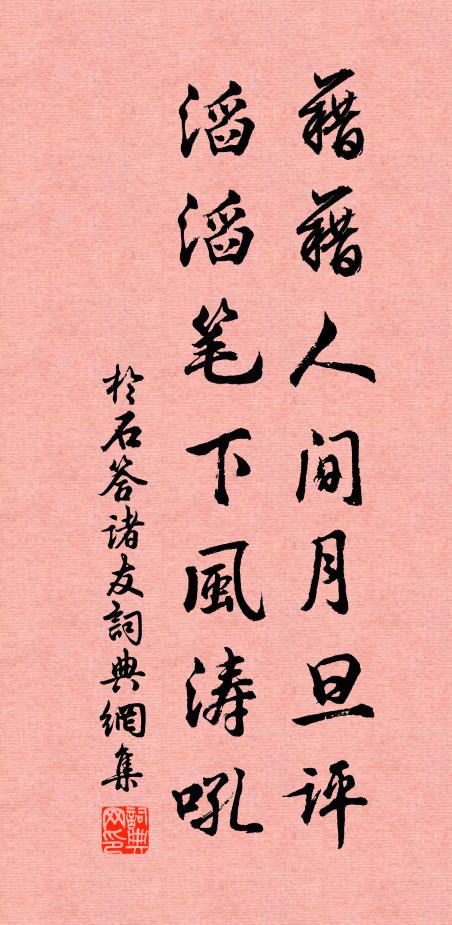 藉藉人间月旦评
滔滔笔下風涛吼
於石答诸友詞典網集
詞典网印